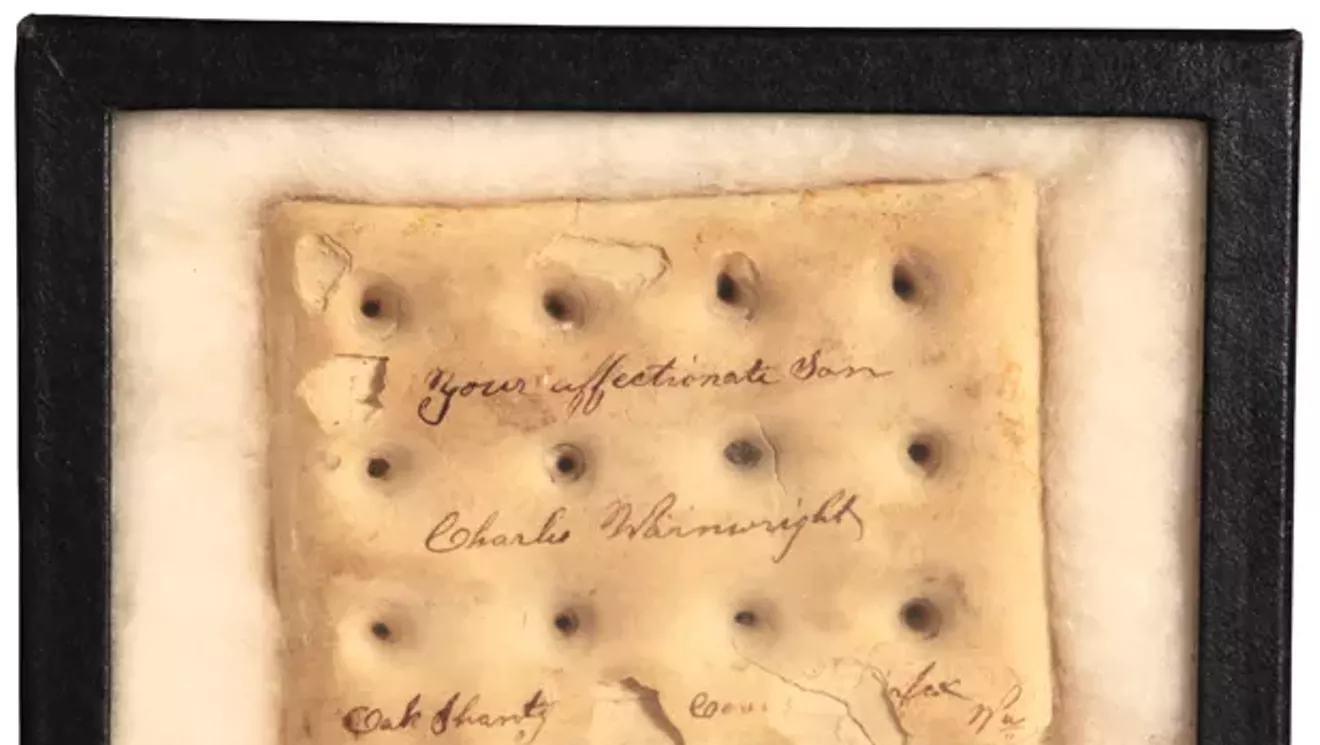 Your affectionate Son
Charlie Wainwright
Oak Shanty
Va